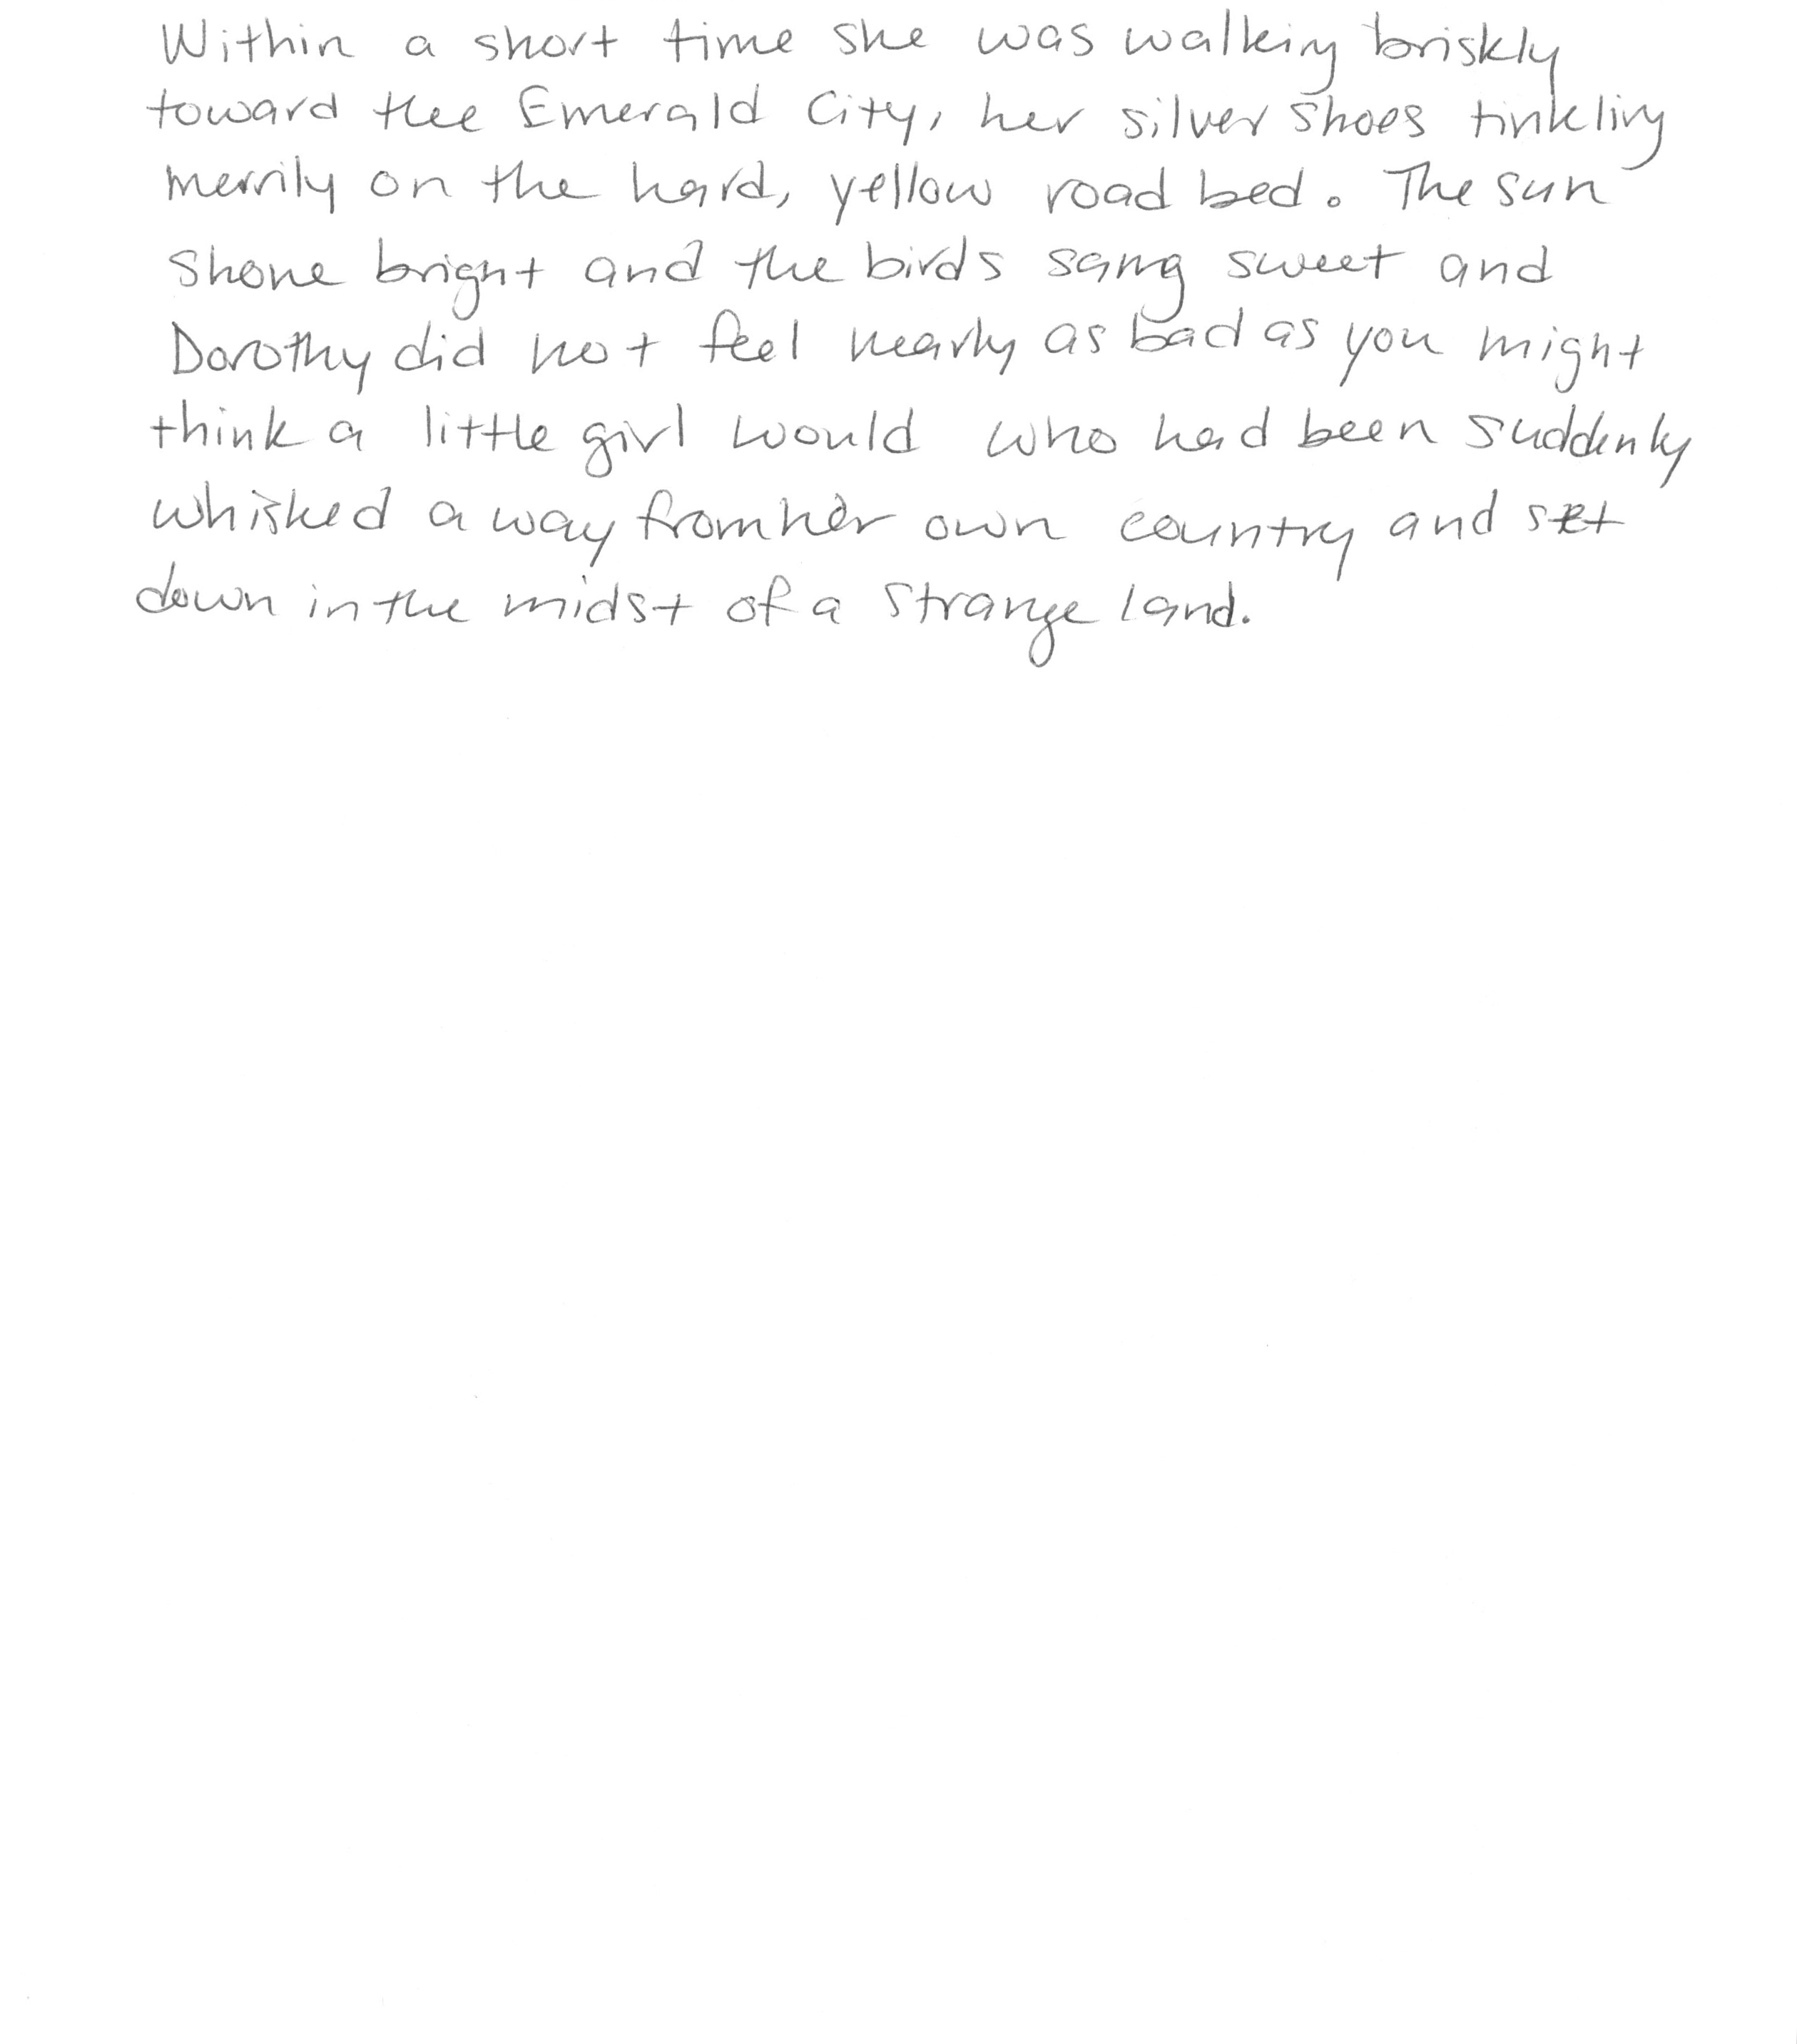 Within a short time she was walking briskly
toward the Emerald City, her silver shoes tinkling
merrily on the hard, yellow road bed. The sun
shone bright and the birds sang sweet and
Dorothy did not feel nearly as bad as you might
think a little girl would who had been suddenly
whisked away from her own country and set
down in the midst of a strange land.